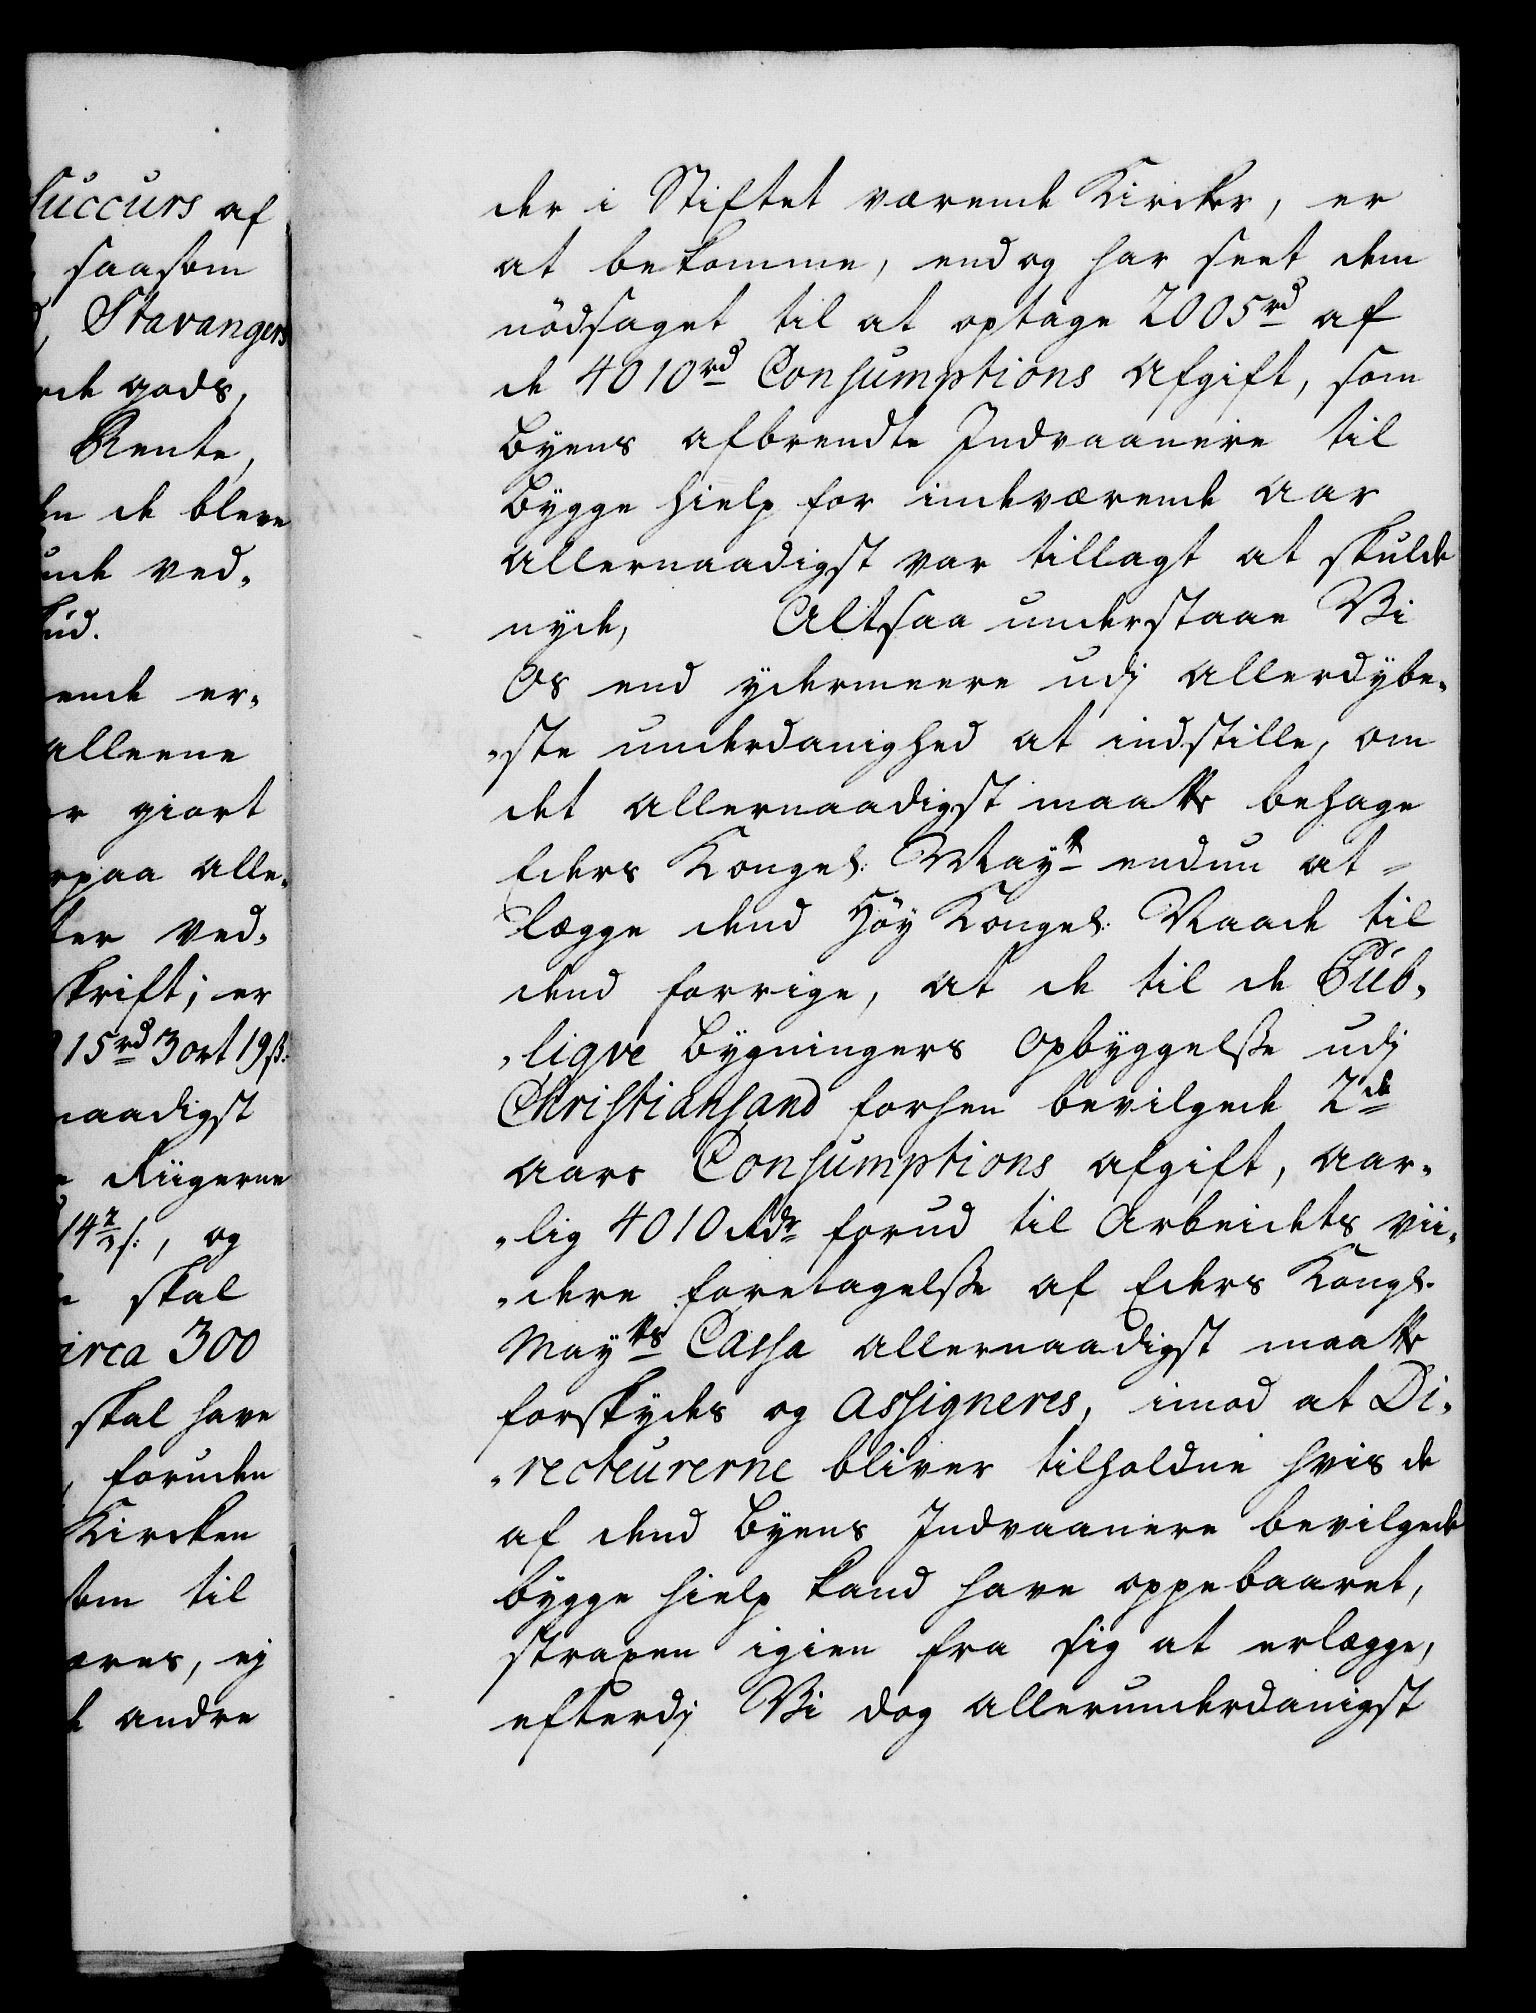 Succurs af
saasom
Stavangers
gods,
Rente,
de bleve
ved-
er-
alleene
giort
paa alle-
ved-
skrift; er
15 rd 3 ort 19 ß:
naadigst
Riigerne
og
skal
circa 300
skal have
foruden
Kircken
som til
ej
andre
der i Stiftet værende Kircker, er
at bekomme, endog har seet dem
nödsaget til at optage 2005 rd af
de 4010 rd Consumptions Afgift, som
Byens afbrendte Indvaanere til
Bygge hielp for indeværende Aar
Allernaadigst var tillagt at skulde
nyde, Altsaa understaae Vi
Os end ydermeere udj Allerdybe-
-ste underdanighed at indstille, om
det Allernaadigst maatte behage
Eders Kongel: Mayt endnu at
lægge dend Höy Kongel: Naade til
dend forrige, at de til de Pub-
-liqve Bygningers Opbyggelße udj
Christiansand forhen bevilgede 2de
Aars Consumptions Afgift, Aar-
-lig 4010 Rdr forud til Arbeidets vii-
-dere foretagelße af Eders Kongl.
Mayts Cassa Allernaadigst maatte
forskydes og Assigneres, imod at Di-
-recteurerne bliver tilholdne hvis de
af dend Byens Indvaanere bevilgede
bygge hielp kand have oppebaaret,
straxen igien fra sig at erlægge,
efterdj Vi dog Allerunderdanigst